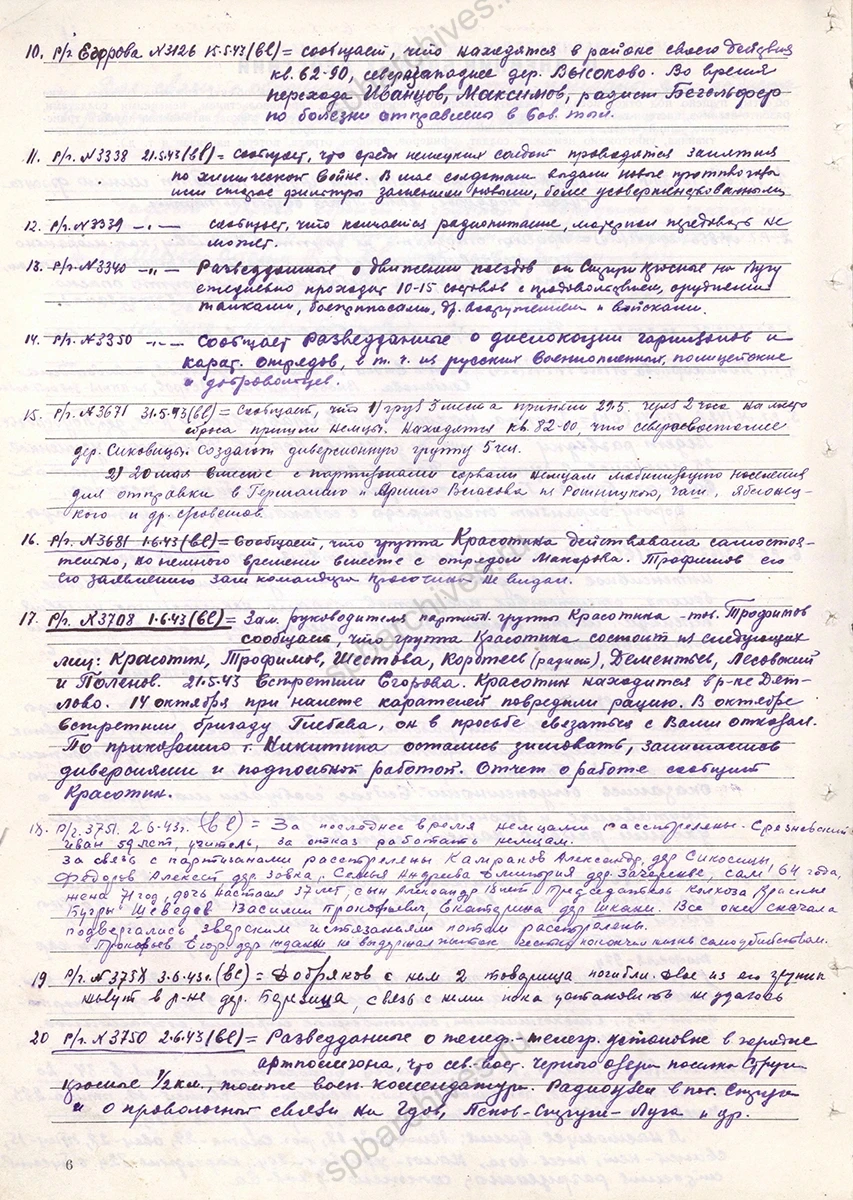 10. Р/г. Егорова №3126 15.5.43 (вl) = сообщает, что находятся в районе своего действия
кв. 62-90, северозападнее дер. Высоково. Во время
перехода Иванцов, Максимов, радист Бегольфер
по болезни отправлено в Сов. тыл.
11. Р/г. №3338 21.5.43 (вl) = сообщает, что среди немецких солдат проводятся занятия
по химической войне. В мае солдатам выдали новые противогазы
или старые фильтры заменены новыми, более усовершенствованными
12. Р/г. №3339 —„— сообщает, что кончается радиопитание, передавать не
может.
13. Р/г. №3340 —„— Разведданные о движении поездов от Струги Красные на Лугу
ежедневно проходит 10-15 составов с продовольствием, орудиями
танками, боеприпасами, др. вооружением и войсками.
14. Р/г. №3350 —„— Сообщает разведданные о дислокации гарнизонов и
карат. отрядов, в т. ч. из русских военнопленных, полицейские
и добровольцев.
15. Р/г. №3671 31.5.43 (вl) = Сообщает, что 1) груз 3 мешка приняли 29.5. через 2 часа на место
сброса пришли немцы. Находятся кв. 82-00, что северовосточнее
дер. Сиковицы. Создают диверсионную группу 5 чел.
2) 20 мая вместе с партизанами сорвали немцам мобилизацию населения
для отправки в Германию и Армию Власова из Ропницкого, Яблонец-
кого и др. с/советов.
16. Р/г. №3681 1.6.43 (вl) = Сообщает, что группа Красоткина действовала самостоя-
тельно, но немного времени вместе с отрядом Макарова. Трофимов его
его заявлению зам командира не видал.
17. Р/г. №3708 1.6.43 (вl) = Зам. руководителя партийн. группы Красоткина тов. Трофимов
сообщает что группа Красоткина состоит из следующих
лиц: Красоткин, Трофимов, Шестова, Коротеев (радист), Дементьев, Лесовский
и Поленов. 21.5.43 встретили Егорова. Красоткин находится в р-не Дет-
лово. 14 октября при налете карателей повредили рацию. В октябре
встретили бригаду Глебова, он в просьбе связаться с Вами отказал.
По приказанию т. Никитина остались зимовать, занимались
диверсиями и подпольной работой. Отчет о работе сообщит
Красоткин.
18. Р/г. 3751. 2.6.43г. (вl) = За последнее время немцами расстреляны. Срезневский
Иван 59 лет, учитель, за отказ работать немцам.
За связь с партизанами расстреляны Камраков Александр, дер Сикосицы,
Федоров Алексей дер. Зовка, Семья Андреева Дмитрия дер. Зачеренье, сам 64 года,
жена 71 год, дочь Настасия 37 лет, сын Александр лет Председатель Колхоза Красные
Бугры Шеведов Василий Прокофьевич, Екатерина дер Шкани. Все они сначала
подвергались зверским истязаниям потом расстреляны.
Прокофьев Егор, дер Жданы не выдержал пыток, кончил жизнь самоубийством.
19 Р/г. №3758 3.6.43г. (вl) = Добряков с ним 2 товарища погибли. Двое из его группы
живут в р-не дер. Березица, связь с ними пока установить не удалось
20 Р/г. №3750 2.6.43 (вl) = Разведданные о телеф.-телегр. установке в городке
артполигона, что сев.-вост. Черного озера поселка Струги
Красные 1/2 км., тоже воен. комендатура. Радиоузел в пос. Струги
и о проволочной связи на Гдов, Псков-Струги-Луга и др.
6
spbarchives.ru
spbarchives.ru
spbarchives.ru
spbarchives.ru